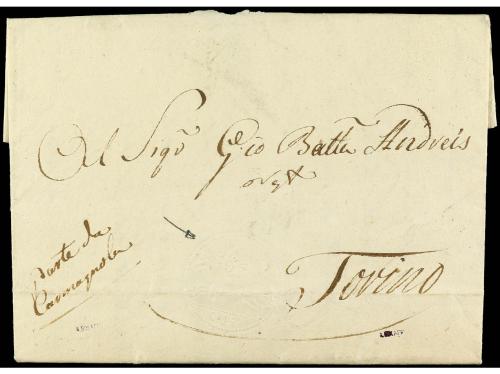 Al Sigr Gio Batta Andreis
Parte da
Carmagnola
Torino